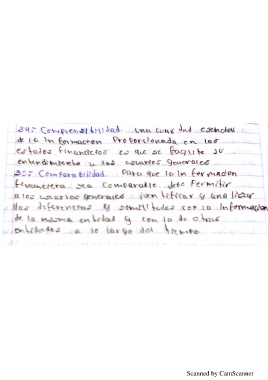 345 Comprensibilidad. una cualidad esencial
de la informacion Proporcionada en los
estados financieros es que se facilite su
entendimiento a los usuarios generales
355 Comparabilidad. Para que la informacion
financiera sea comparable debe Permitir
a los usuarios generales identificar y analizar
las diferencias y similitudes con la informacion
de la misma entidad y con la de otras
entidades a lo largo del tiempo
Scanned by CamScanner